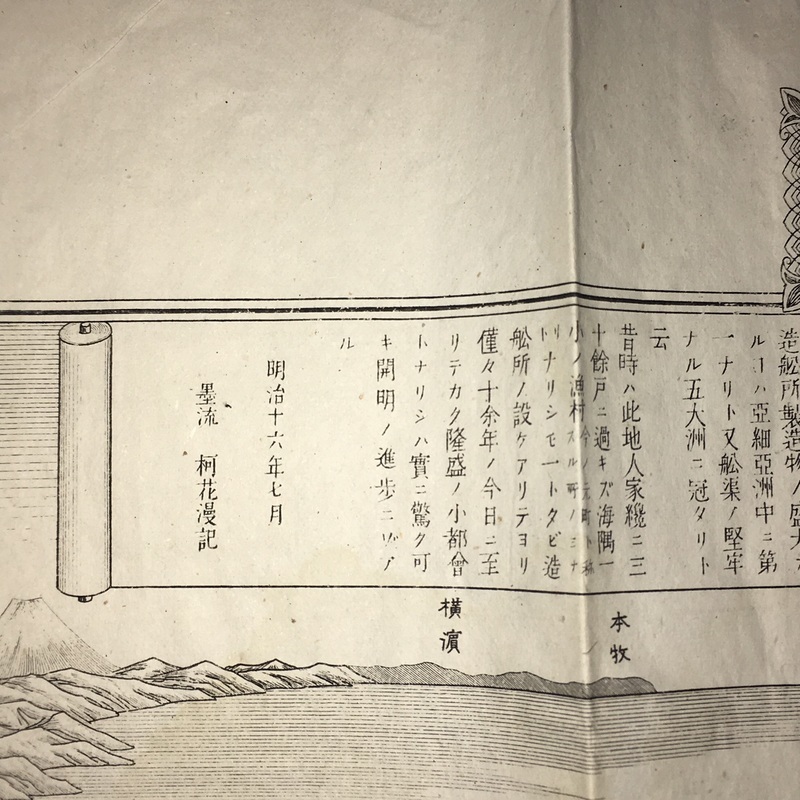 造舩所製造物ノ盛大ナ
ルヿハ亞細亞洲中ニ第
一ナリト又舩渠ノ堅牢
ナル五大洲ニ冠タリト
云
昔時ハ此地人家纔ニ三
十餘戸ニ過キズ海隅一
小ノ漁村今ノ元町ト称スル所ノミナ
リナリシモ一トタビ造
舩所ノ設ケアリテヨリ
僅々十余年ノ今日ニ至
リテカク隆盛ノ小都會
トナリシハ實ニ驚ク可
キ開明ノ進歩ニゾア
ル
明治十六年七月
墨流 柯花漫記
本牧
橫濵